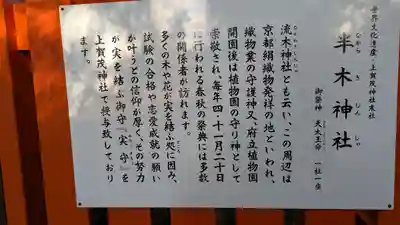 世界文化遺産・上賀茂神社末社
半木神社
なからぎじんじゃ
御祭神 天太玉命 一社一座
流木神社とも云い、この周辺は
京都絹織物発祥の地と、いわれ、
織物業の守護神又、府立植物園
開園後は植物園の守り神として
崇敬され、毎年四・十一月二十日
に行われる春秋の祭典には多数
の関係者が訪れます。
多くの木や花が実を結ぶ処に因み、
試験の合格や恋愛成就の願い
が叶うとの信仰が厚く、その努力
が実を結ぶ御守『実守』を
上賀茂神社で授与致しており
ます。